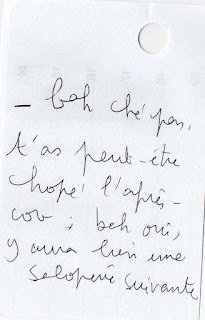 _ bah ché pas,
t'as peut-être
chopé l'après-
cov ; beh oui,
y aura bien une
saloperie suivante